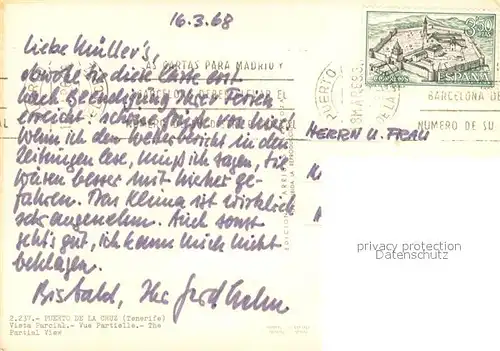 16.3.68
Liebe Müller's,
obwohl Sie diese Karte erst
nach Beendigung Ihrer Ferien
erreicht: schöne Grüße von hier!
Wenn ich den Wetterbericht in den
Zeitungen lese, muß ich sagen, Sie
wären besser mit hierher ge-
fahren. Das Klima ist wirklich
sehr angenehm. Auch sonst
geht's gut, ich kann mich nicht
beklagen.
Bis bald, Ihr
HERRN U. FRAU
3,50 PTAS
CORREOS
ESPAÑA
PUERTO DE LA
LAS CARTAS PARA MADRID Y
BARCELONA DEBEN LLEVAR EL
BARCELONA DE
NUMERO DE SU
privacy protection
oldthing.de
2.237.- PUERTO DE LA CRUZ (Tenerife)
Vista Parcial.- Vue Partielle.- The
Partial View